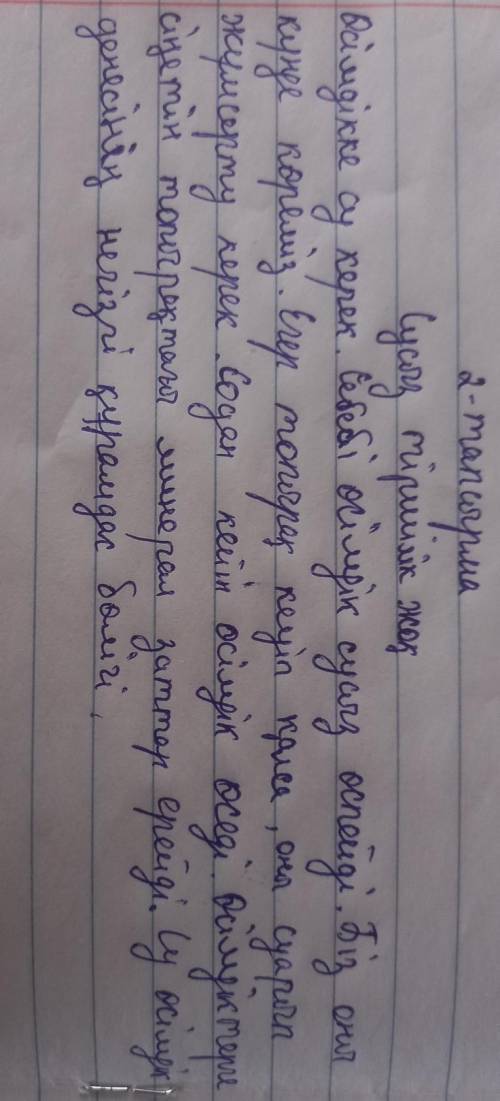 2-тапсырма
Сусыз тіршілік жоқ
Өсімдікке су керек. Себебі өсімдік сусыз өспейді. Біз оны
күнде көреміз. Егер топырақ кеуіп қалса, оны суарып
жұмсарту керек. Содан кейін өсімдік өседі. Өсімдіктерге
сіңетін топырақтағы минерал заттар ериді. Су өсімдік
денесінің негізгі құрамдас бөлігі.